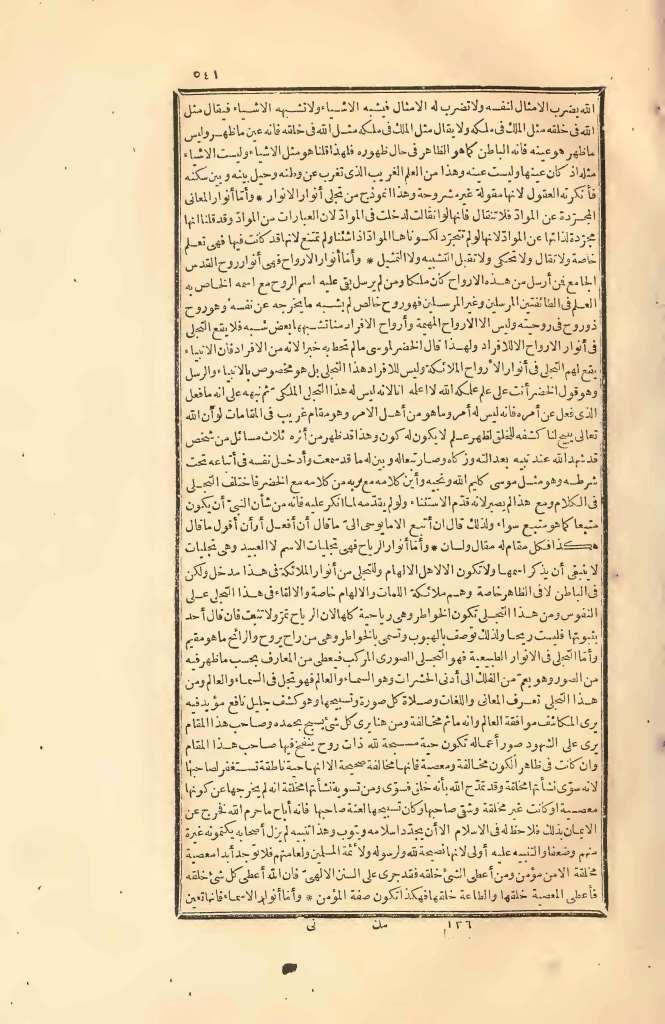 ٥٤١
الله يضرب الامثال لنفسه ولا تضرب له الامثال فيشبه الاشياء ولا تشبهه الاشياء فيقال مثل
الله فى خلقه مثل الملك فى ملكه ولا يقال مثل الملك فى ملكه مثل الله فى خلقه فانه عين ما ظهر وليس
ما ظهر هو عينه فانه الباطن كما هو الظاهر فى حال ظهوره فلهذا قلنا هو مثل الاشياء وليست الاشياء
مثله اذ كان عينها وليست عينه وهذا من العلم الغريب الذى تغرب عن وطنه وحيل بينه و بين سكنه
فأنكرته العقول لانها مقولة غير مشروحة وهذا انموذج من تجلى أنوار الانوار * وأما أنوار المعانى
المجردة عن المواد فلا تنقال فانها لو انقالت لدخلت فى المواد لان العبارات من المواد وقد قلنا انها
مجردة لذاتها عن المواد لانها لو لم تتجرد لكسوناها المواد اذا شئنا ولم تمتنع لانها قد كانت فيها فهى تعلم
خاصة ولا تقال ولا تحكى ولا تقبل التشبيه ولا التمثيل * وأما أنوار الارواح فهى أنوار روح القدس
الجامع فمن أرسل من هذه الارواح كان ملكا ومن لم يرسل بقى عليه اسم الروح مع اسمه الخاص به
العلم فى الطائفتين المرسلين وغير المرسلين فهو روح خالص لم يشبه ما يخرجه عن نفسه وهو روح
ذو روح فى روحيته وليس الا الارواح المهيمة وأرواح الافراد منا تشبهها بعض شبه فلا يقع التجلى
فى أنوار الارواح الا للافراد ولهذا قال الخضر لموسى ما لم تحط به خبرا لانه من الافراد فان الانبياء
يقع لهم التجلى فى أنوار الارواح الملائكة وليس للافراد هذا التجلى بل هو مخصوص بالانبياء والرسل
وهو قول الخضر أنت على علم علمكه الله لا اعلمه انا لانه ليس له هذا التجلى الملكى ثم نبهه على انه ما فعل
الذى فعل عن أمره فانه ليس له أمر وما هو من أهل الامر وهو مقام غريب فى المقامات لو أن الله
تعالى يبيح لنا كشفه للخلق لظهر علم لا يكون له كون وهذا قد ظهر من أثره ثلاث مسائل من شخص
قد شهد الله عند نبيه بعدالته وزكاه وصار تبعا له وبين له ما قد سمعت وأدخل نفسه فى أتباعه تحت
شرطه وهو مثل موسى كليم الله ونجيه وأين كلامه مع ربه من كلامه مع الخضر فاختلف التجلى
فى الكلام ومع هذا لم يصبر لانه قدم الاستثناء ولو لم يقدمه لما انكر عليه فانه من شأن النبى أن يكون
متبعا كما هو متبع سواء ولذلك قال ان أتبع الا ما يوحى الى ما قال أن أفعل أو أن أقول ما قال
هكذا فكل مقام له مقال ولسان * وأما أنوار الرياح فهى تجليات الاسم لا العبيد وهى تجليات
لا ينبغى أن يذكر اسمها ولا تكون الا لاهل الالهام وللتجلى من أنوار الملائكة فى هذا مدخل ولكن
فى الباطن لا فى الظاهر خاصة وهم ملائكة اللمات والالهام خاصة والالقاء فى هذا التجلى على
النفوس ومن هذا التجلى تكون الخواطر وهى رياحية كلها لان الرياح تمر ولا تثبت فان قال أحد
بثبوتها فليست ريحا ولذلك توصف بالهبوب وتسمى بالخواطر وهى من راح يروح والرائح ما هو مقيم
وأما التجلى فى الانوار الطبيعية فهو التجلى الصورى المركب فيعطى من المعارف بحسب ما ظهر فيه
من الصور وهو يعم من الفلك الى أدنى الحشرات وهو السماء والعالم فهو تجل فى السماء والعالم ومن
هذا التجلى تعرف المعانى واللغات وصلاة كل صورة وتسبيحها وهو كشف جليل نافع مؤيد فيه
يرى المكاشف موافقة العالم وانه ما ثم مخالفة ومن هنا يرى كل شئ يسبح بحمده وصاحب هذا المقام
يرى على الشهود صور أعماله تكون حية مسبحة لله ذات روح ينفخ فيها صاحب هذا المقام
وان كانت فى ظاهر الكون مخالفة ومعصية فانها مخالفة صحيحة الا انها حية ناطقة تستغفر لصاحبها
لانه سوى نشأتها مخلقة وقد تمدح الله بأنه خلق فسوى ومن تسوية نشأتها مخلقة انه لم يخرجها عن كونها
معصية ولو كانت غير مخلقة وشقى صاحبها وكان تسبيحها لعنة صاحبها فانه أباح ما حرم الله فخرج عن
الايمان بذلك فلا حظ له فى الاسلام الا أن يجدد اسلامه ويتوب وهذا تنبيه لم يزل أصحابه يكتمونه غيرة
منهم وضعفا والتنبيه عليه أولى لانها نصيحة لله ولرسوله ولائمة المسلمين ولعامتهم فلا توجد أبدا معصية
مخلقة الا من مؤمن ومن أعطى الشئ خلقه فقد جرى على السنن الالهى فان الله أعطى كل شئ خلقه
فأعطى المعصية خلقها والطاعة خلقها فهكذا تكون صفة المؤمن * وأما أنوار الاسماء فانها تعين
١٣٦ مك نى